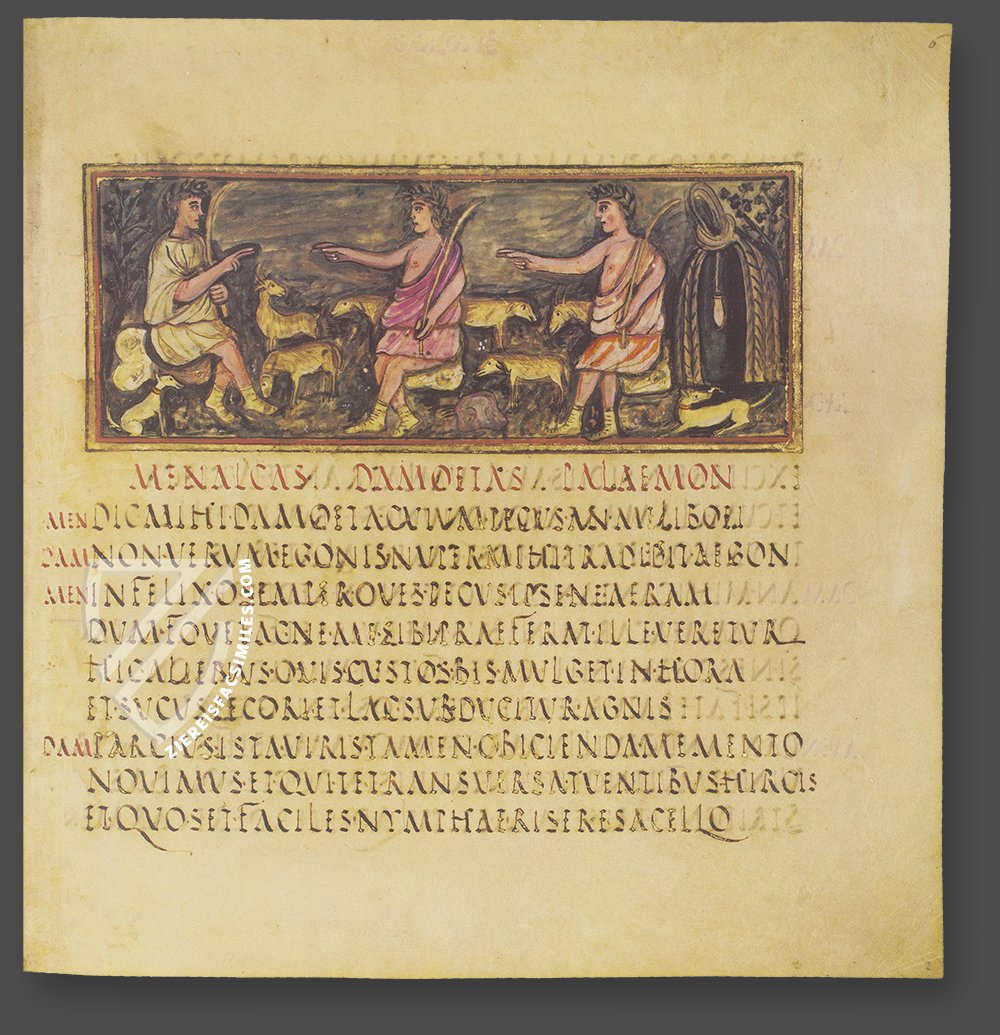 6
MENALCAS DAMOETAS PALAEMON
MEN DIC·MIHI·DAMOETA·CVIVM·PECVS·AN·MELIBOEI
DAM NON·VERVM·AEGONIS·NVPER·MIHI·TRADEDIT·AEGON
MEN INFELIX·O·SEMPER·OVES·PECVS·IPSE·NEAERAM
DVM·FOVET·AC·NE·ME·SIBI·PRAEFERAT·ILLE·VERETVR
HIC·ALIENVS·OVIS·CVSTOS·BIS·MVLGET·IN·HORA
ET·SVCVS·PECORI·ET·LAC·SVBDVCITVR·AGNIS
DAM PARCIVS·ISTA·VIRIS·TAMEN·OBICIENDA·MEMENTO
NOVIMVS·ET·QVI·TE·TRANSVERSA·TVENTIBVS·HIRCIS
ET·QVO·SET·FACILES·NYMPHAE·RISERE·SACELLO
ZIEREISFACSIMILES.COM